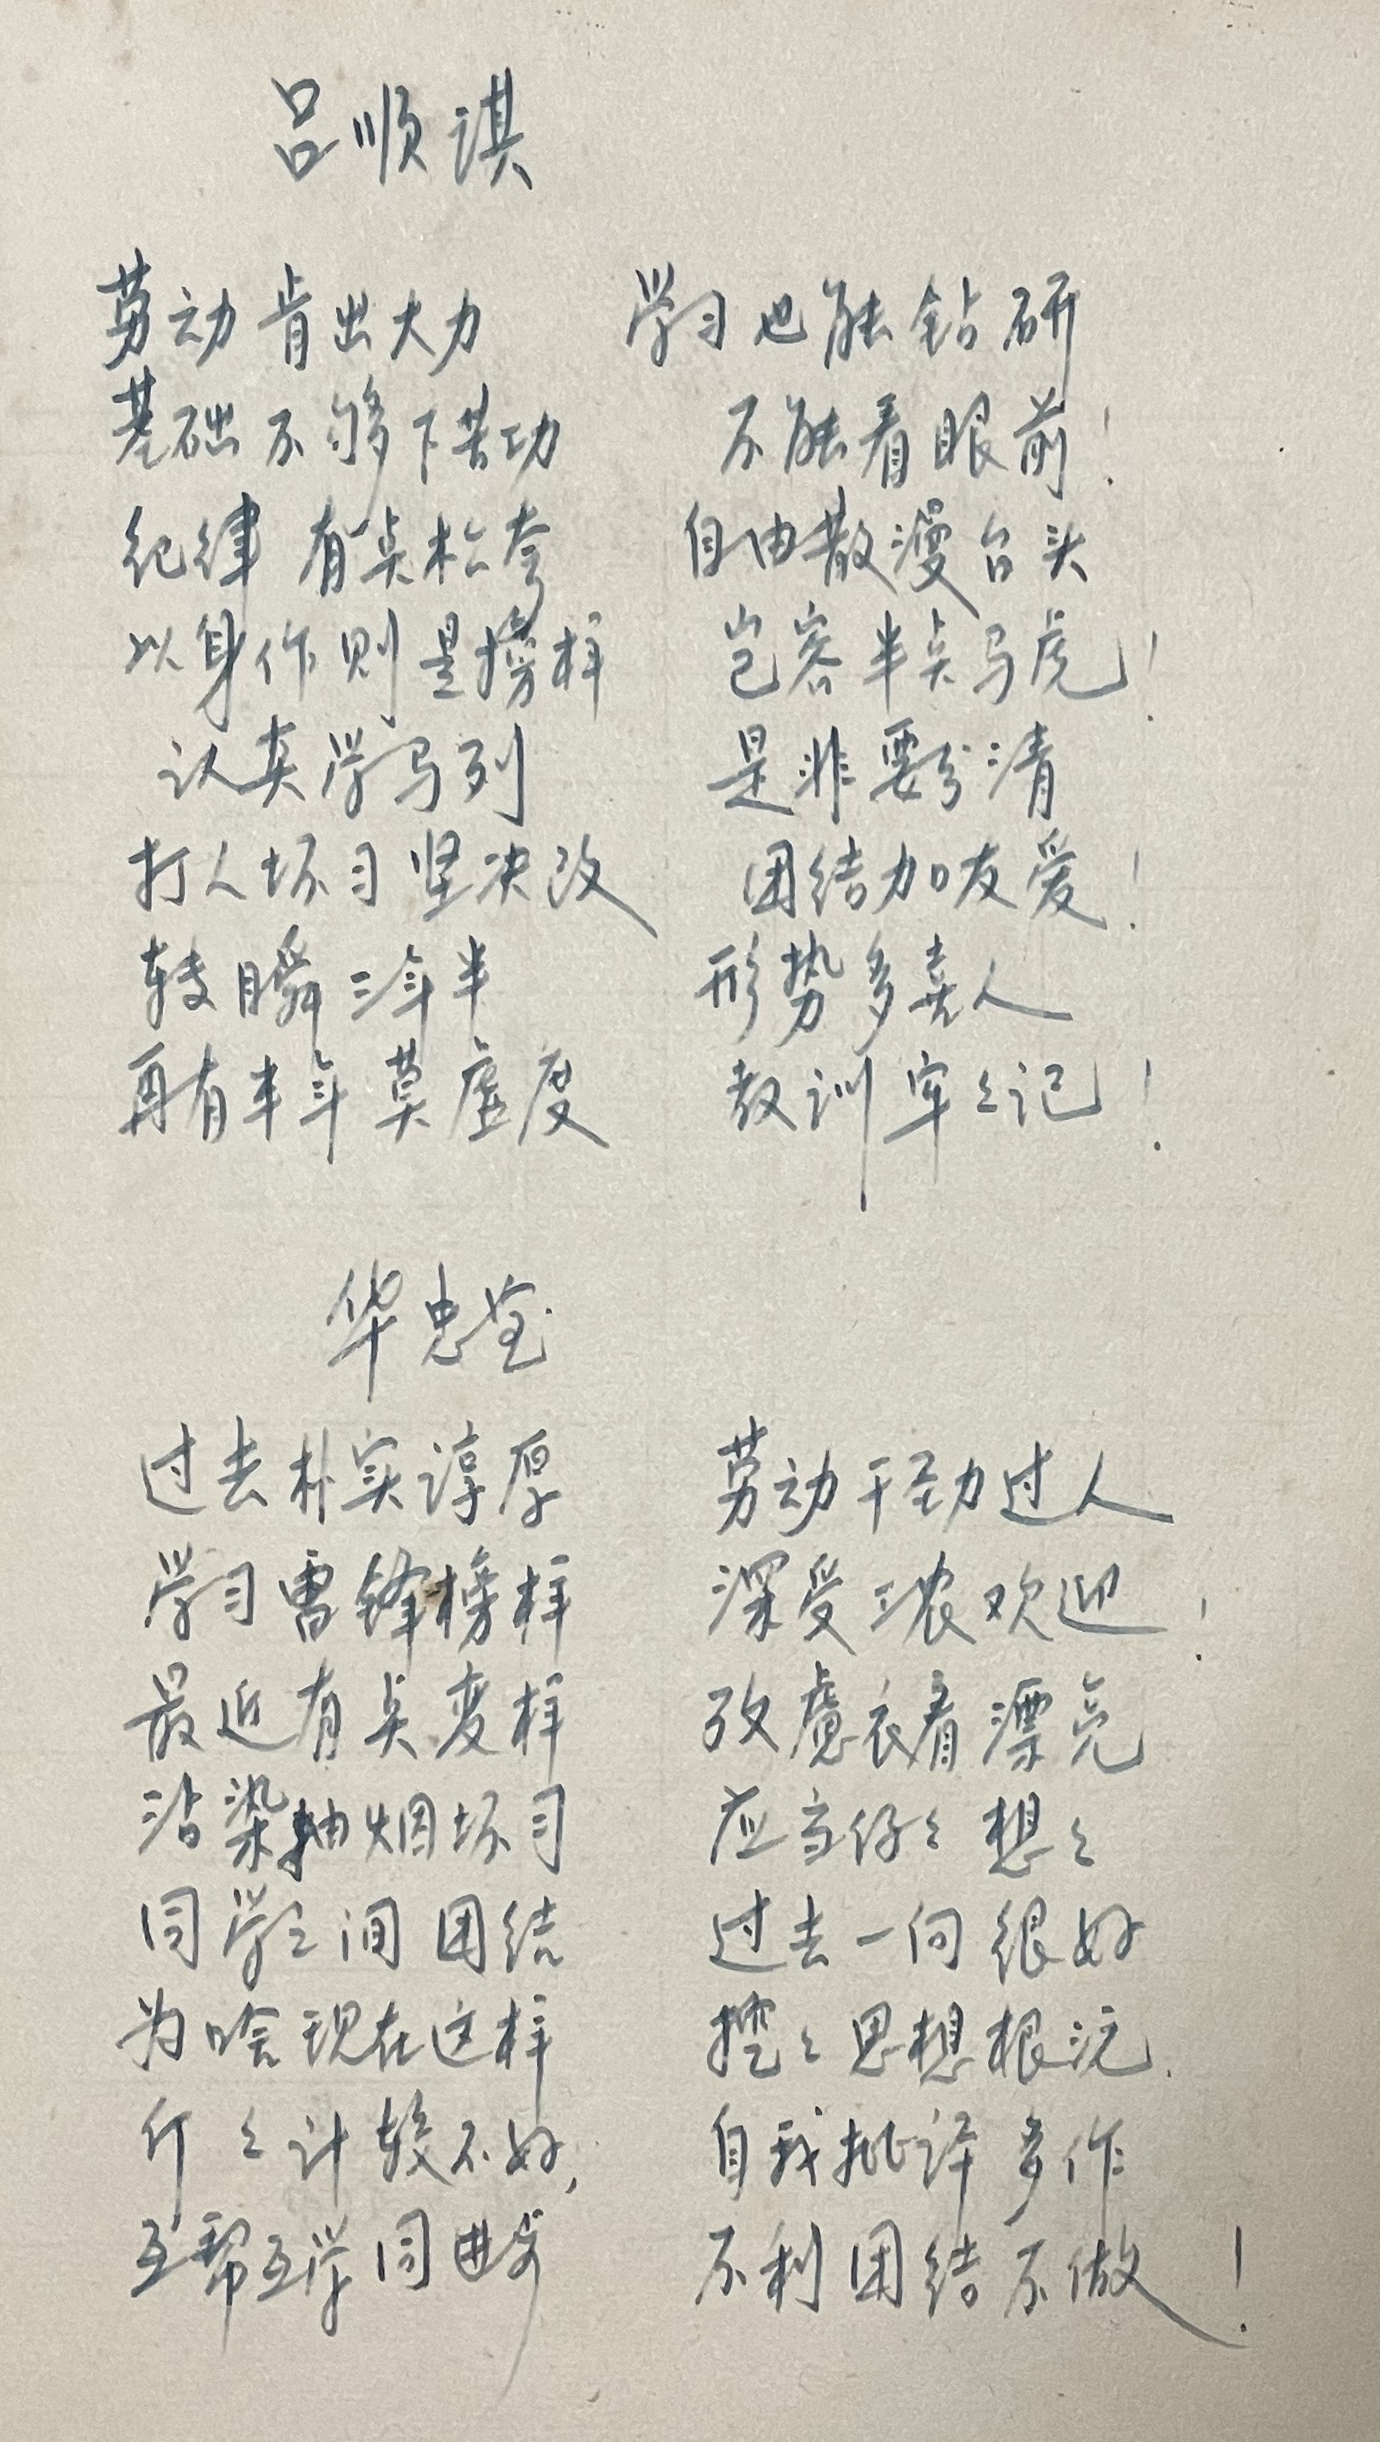 吕顺祺
劳动肯出大力 学习也能钻研
基础不够下苦功 不能看眼前！
纪律有点松夸 自由散漫台头
以身作则是榜样 岂容半点马虎！
认真学马列 是非要分清
打人坏习坚决改 团结加友爱！
转瞬三年半 形势多喜人
再有半年莫虚度 教训牢々记！
华忠
过去朴实淳厚 劳动干劲过人
学习雷锋榜样 深受工农欢迎！
最近有点变样 改虑衣着漂亮
沾染抽烟坏习 应当仔々想々
同学之间团结 过去一向很好
为啥现在这样 挖々思想根沅.
斤々计较不好， 自我批评多作
互帮互学同进步 不利团结不做！